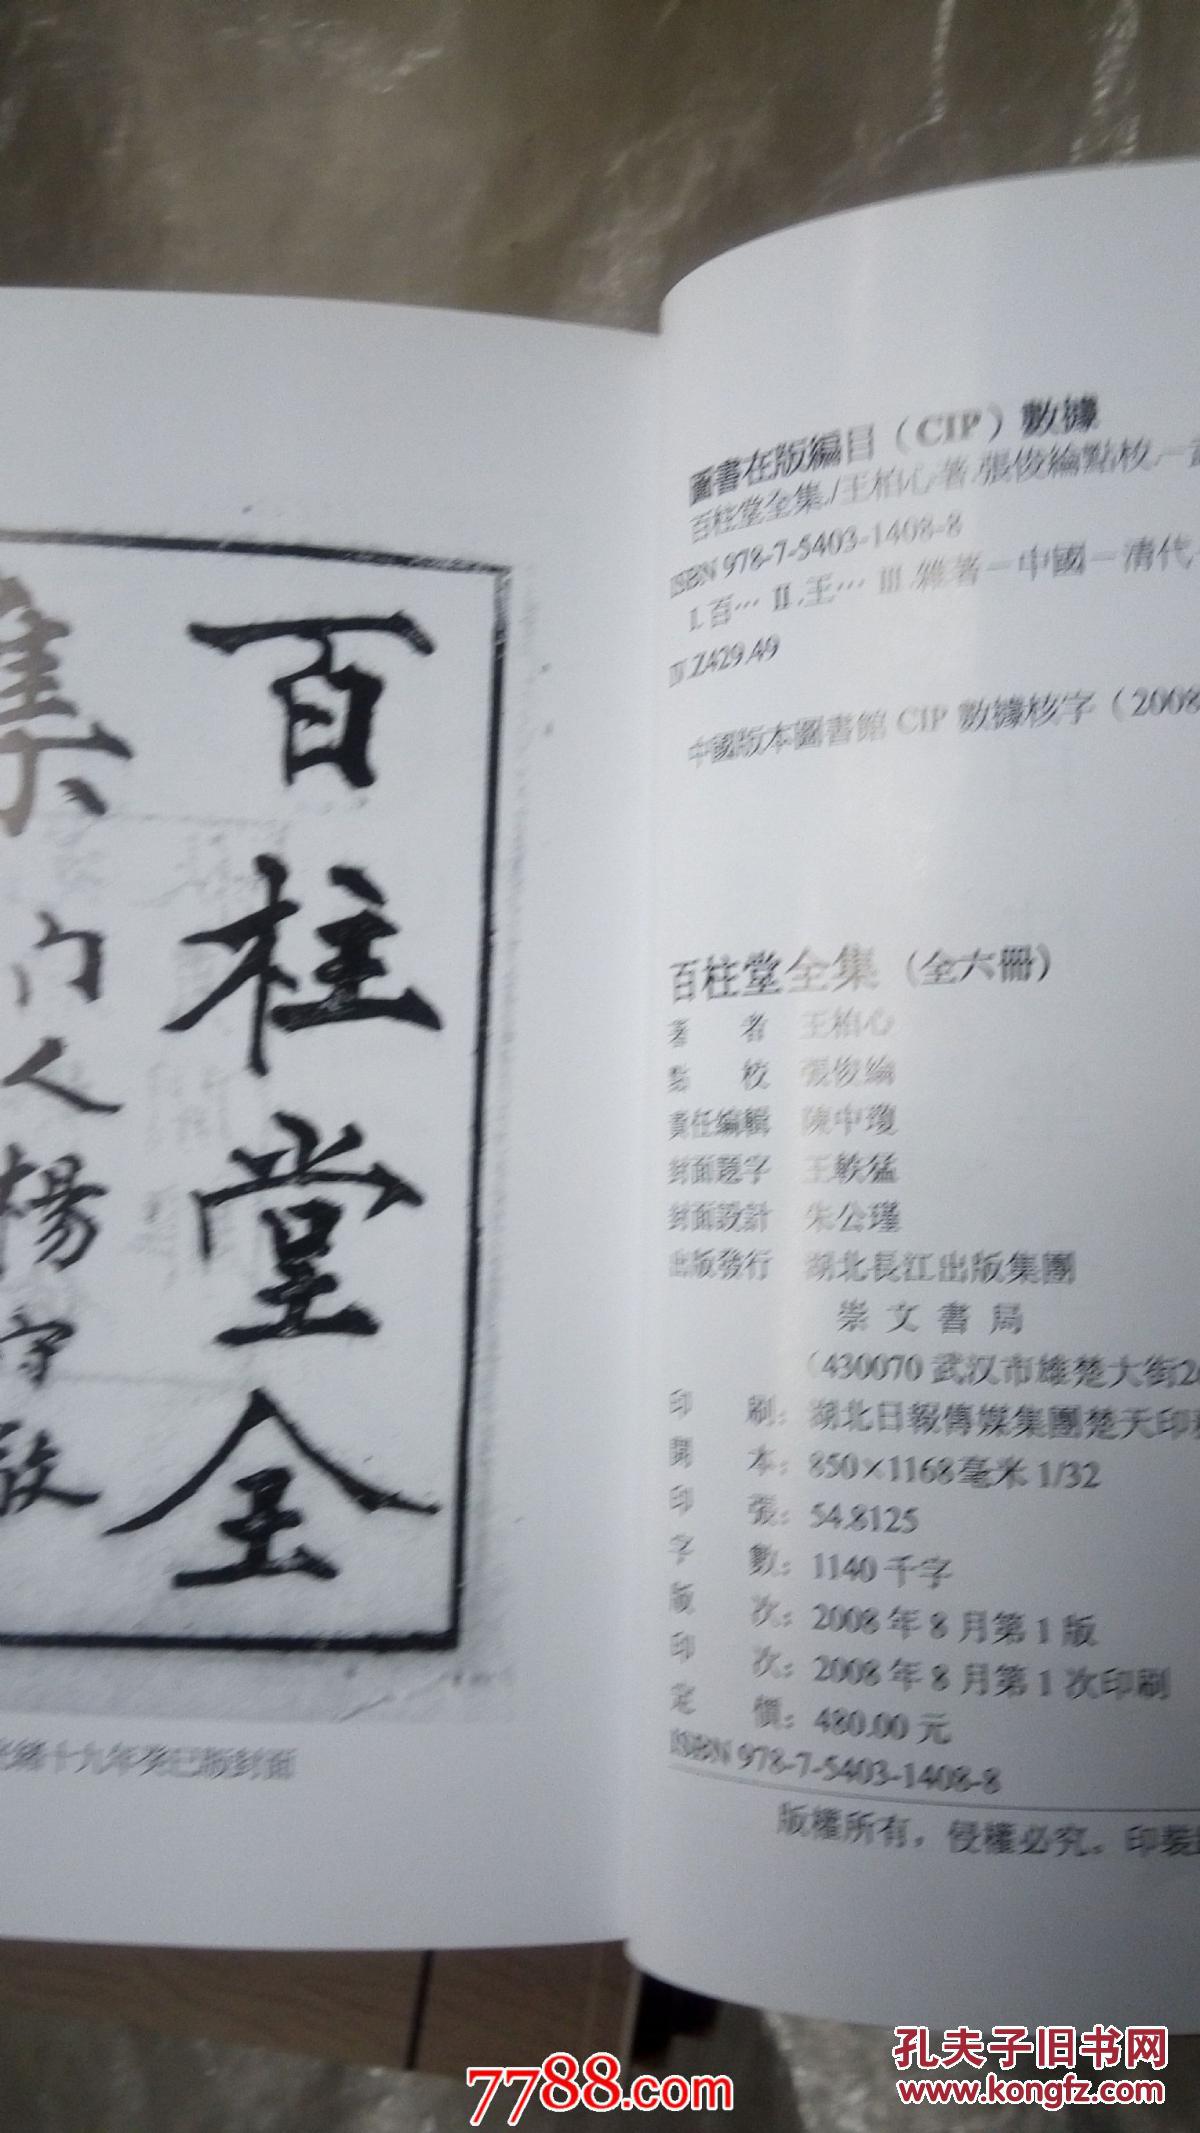 百柱堂全
集
門人楊守敬
光緒十九年癸巳版封面
圖書在版編目（CIP）數據
百柱堂全集./王柏心著.張俊綸點校.—
ISBN 978-7-5403-1408-8
Ⅰ.百… Ⅱ.王… Ⅲ.雜著－中國－清代
Ⅳ.Z429.49
中國版本圖書館 CIP 數據核字（2008
百柱堂全集（全六冊）
著 者 王柏心
點 校 張俊綸
責任編輯 陳中瓊
封面題字 王軼猛
封面設計 朱公瑾
出版發行 湖北長江出版集團
崇文書局
（430070 武汉市雄楚大街26
印 刷：湖北日報傳媒集團楚天印
開 本：850×1168毫米 1/32
印 張：54.8125
字 數：1140 千字
版 次：2008 年 8 月第 1 版
印 次：2008 年 8 月第 1 次印刷
定 價：480.00 元
ISBN 978-7-5403-1408-8
版權所有，侵權必究。印裝
孔夫子旧书网
www.kongfz.com
7788.com